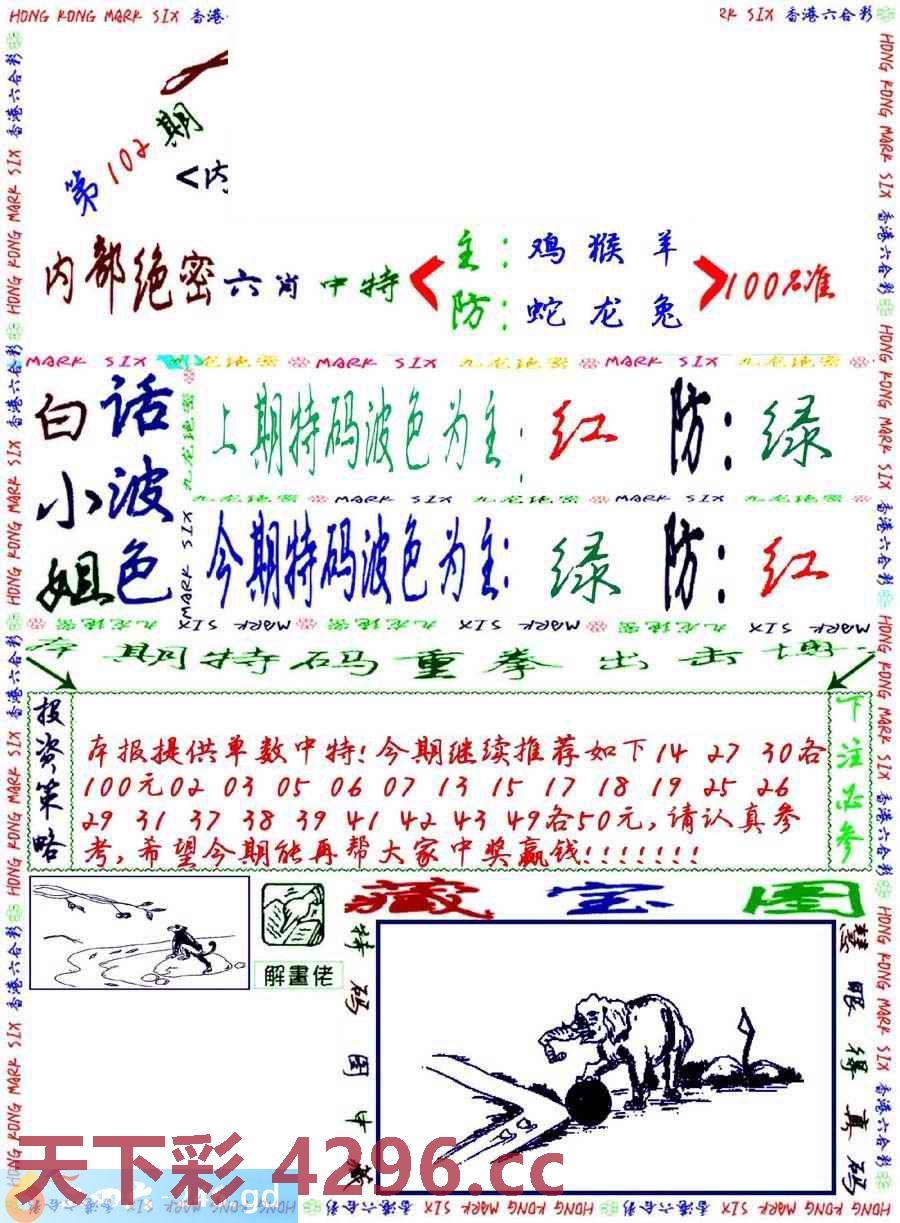 HONG KONG MARK SIX 香港
RK SIX 香港六合彩
第102期
<内
内部绝密六肖中特
主：鸡猴羊
防：蛇龙兔
100%准
MARK SIX 九龙绝密 MARK SIX 九龙绝密 MARK SIX 九龙绝密
白话小姐
波色
上期特码波色为主：红 防：绿
九龙绝密 MARK SIX 九龙绝密 MARK SIX 九龙绝密
今期特码波色为主：绿 防：红
MARK SIX 九龙绝密 MARK SIX 九龙绝密 MARK SIX
期特码重拳出击
投资策略
本报提供单数中特！今期继续推荐如下14 27 30各
100元02 03 05 06 07 13 15 17 18 19 25 26
29 31 37 38 39 41 42 43 49各50元，请认真参
考，希望今期能再帮大家中奖赢钱！！！！！！！
下注必参
解畫佬
藏宝图
特码图中藏
慧眼得真码
HONG KONG MARK SIX 香港六合彩
天下彩 4296.cc
gd